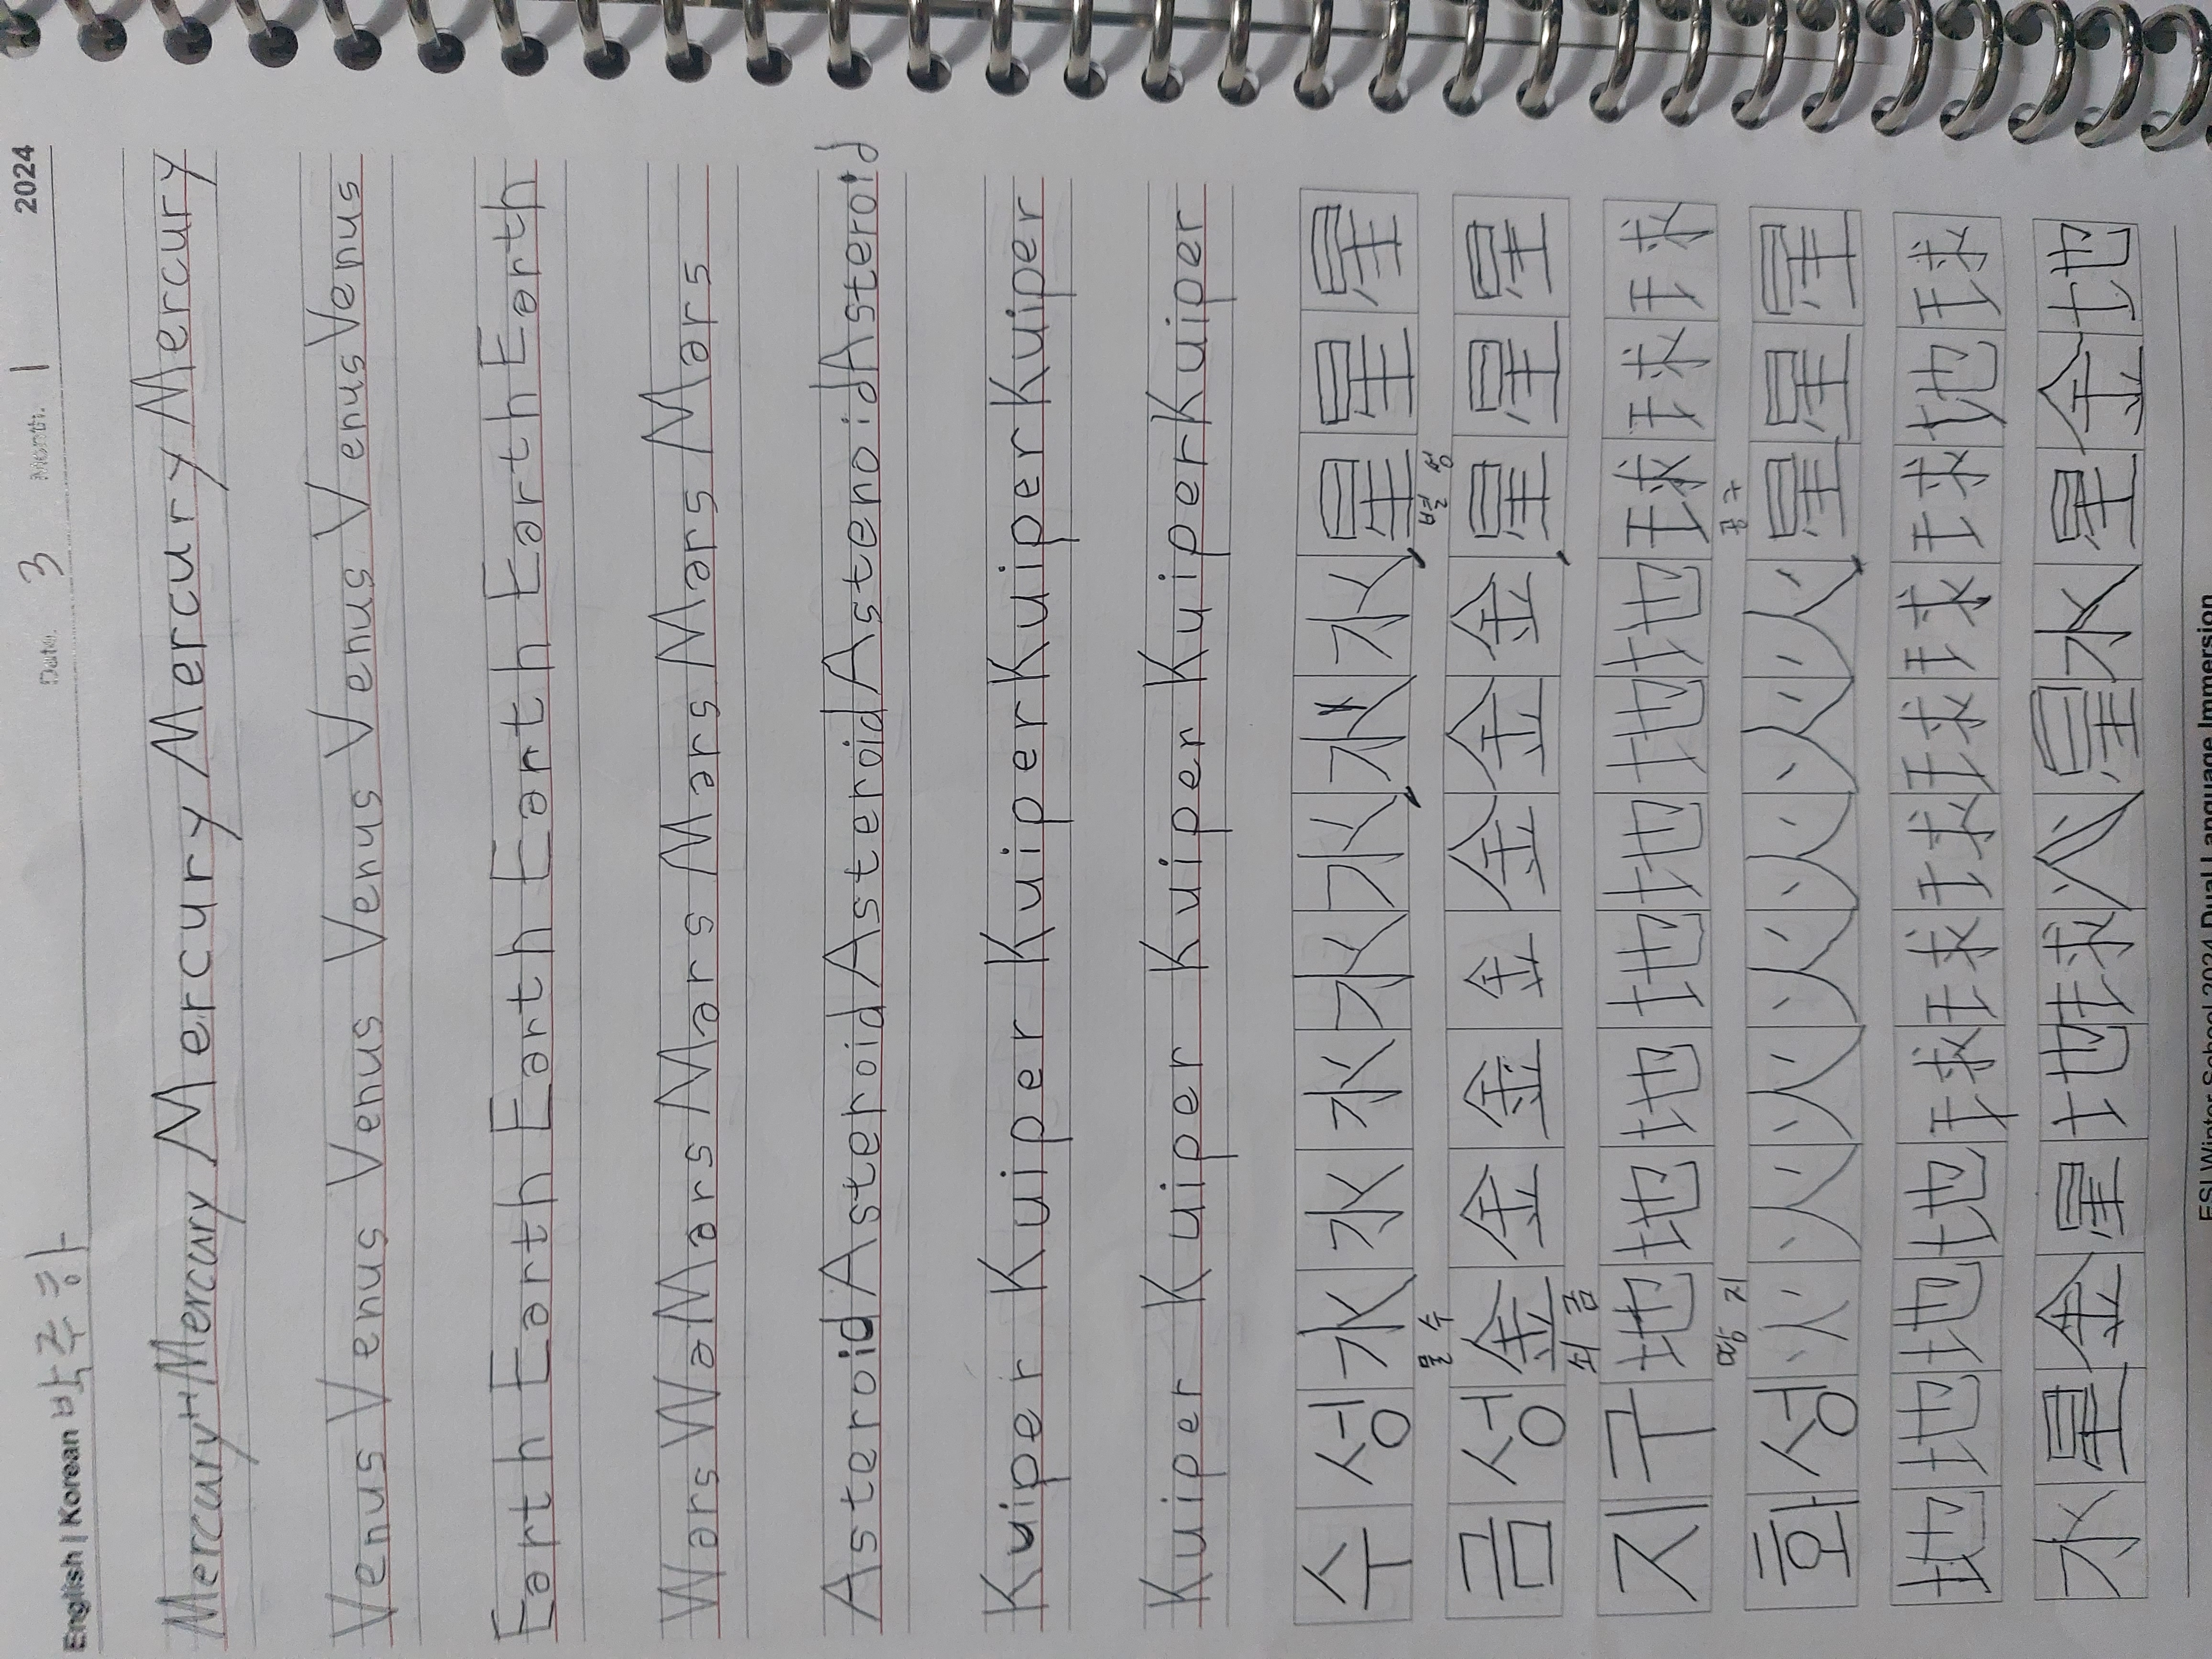 English | Korean 박주하 Date. 3 Month. 1 2024
Mercury Mercury Mercury Mercury Mercury Mercury
Venus Venus Venus Venus Venus Venus Venus
Earth Earth Earth Earth Earth Earth Earth
Wars Wa Mars Mars Mars Mars Mars
Asteroid Asteroid Asteroid Astenoid Asteroid
Kuiper Kuiper Kuiper Kuiper Kuiper
Kuiper Kuiper Kuiper Kuiper Kuiper
수성水水水水水水水星星星
물 수 별 성
금성金金金金金金金星星星
쇠 금
지구地地地地地地地球球球
땅 지 공 구
화성火火火火火火火星星星
地地地地球球球球球球地球
水星金星地球火星水星金地
ESI Winter School 2024 Dual Language Immersion